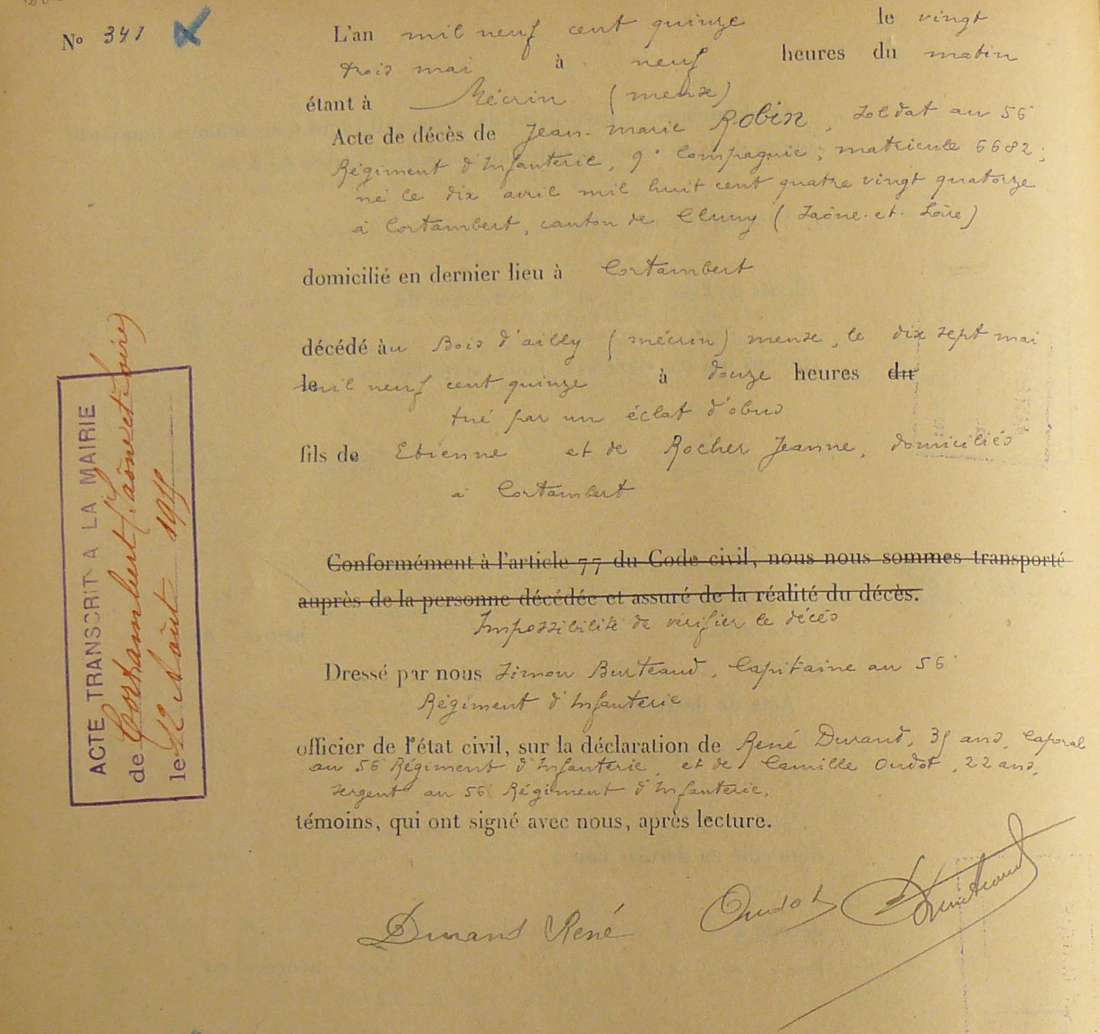 N° 341
L'an mil neuf cent quinze le vingt
trois mai à neuf heures du matin
étant à Mécrin (meuse)
Acte de décès de Jean-marie Robin, soldat au 56
Régiment d'Infanterie, 9e Compagnie, matricule 6682;
né le dix avril mil huit cent quatre vingt quatorze
à Cortambert, canton de Cluny (Saône-et-Loire)
domicilié en dernier lieu à Cortambert
décédé au Bois d'ailly (mécrin) meuse, le dix sept mai
le mil neuf cent quinze à douze heures du
tué par un éclat d'obus
fils de Etienne et de Rocher Jeanne, domiciliés
à Cortambert
Conformément à l'article 77 du Code civil, nous nous sommes transporté
auprès de la personne décédée et assuré de la réalité du décès.
Impossibilité de vérifier le décés
Dressé par nous Simon Burteaud, Capitaine au 56
Régiment d'Infanterie
officier de l'état civil, sur la déclaration de René Durand, 35 ans, Caporal
au 56 Régiment d'Infanterie, et de Camille Oudot, 22 ans,
sergent au 56 Régiment d'Infanterie,
témoins, qui ont signé avec nous, après lecture.
Durand René Oudot
ACTE TRANSCRIT A LA MAIRIE
de Cortambert (Saône et Loire)
le 12 Août 1915